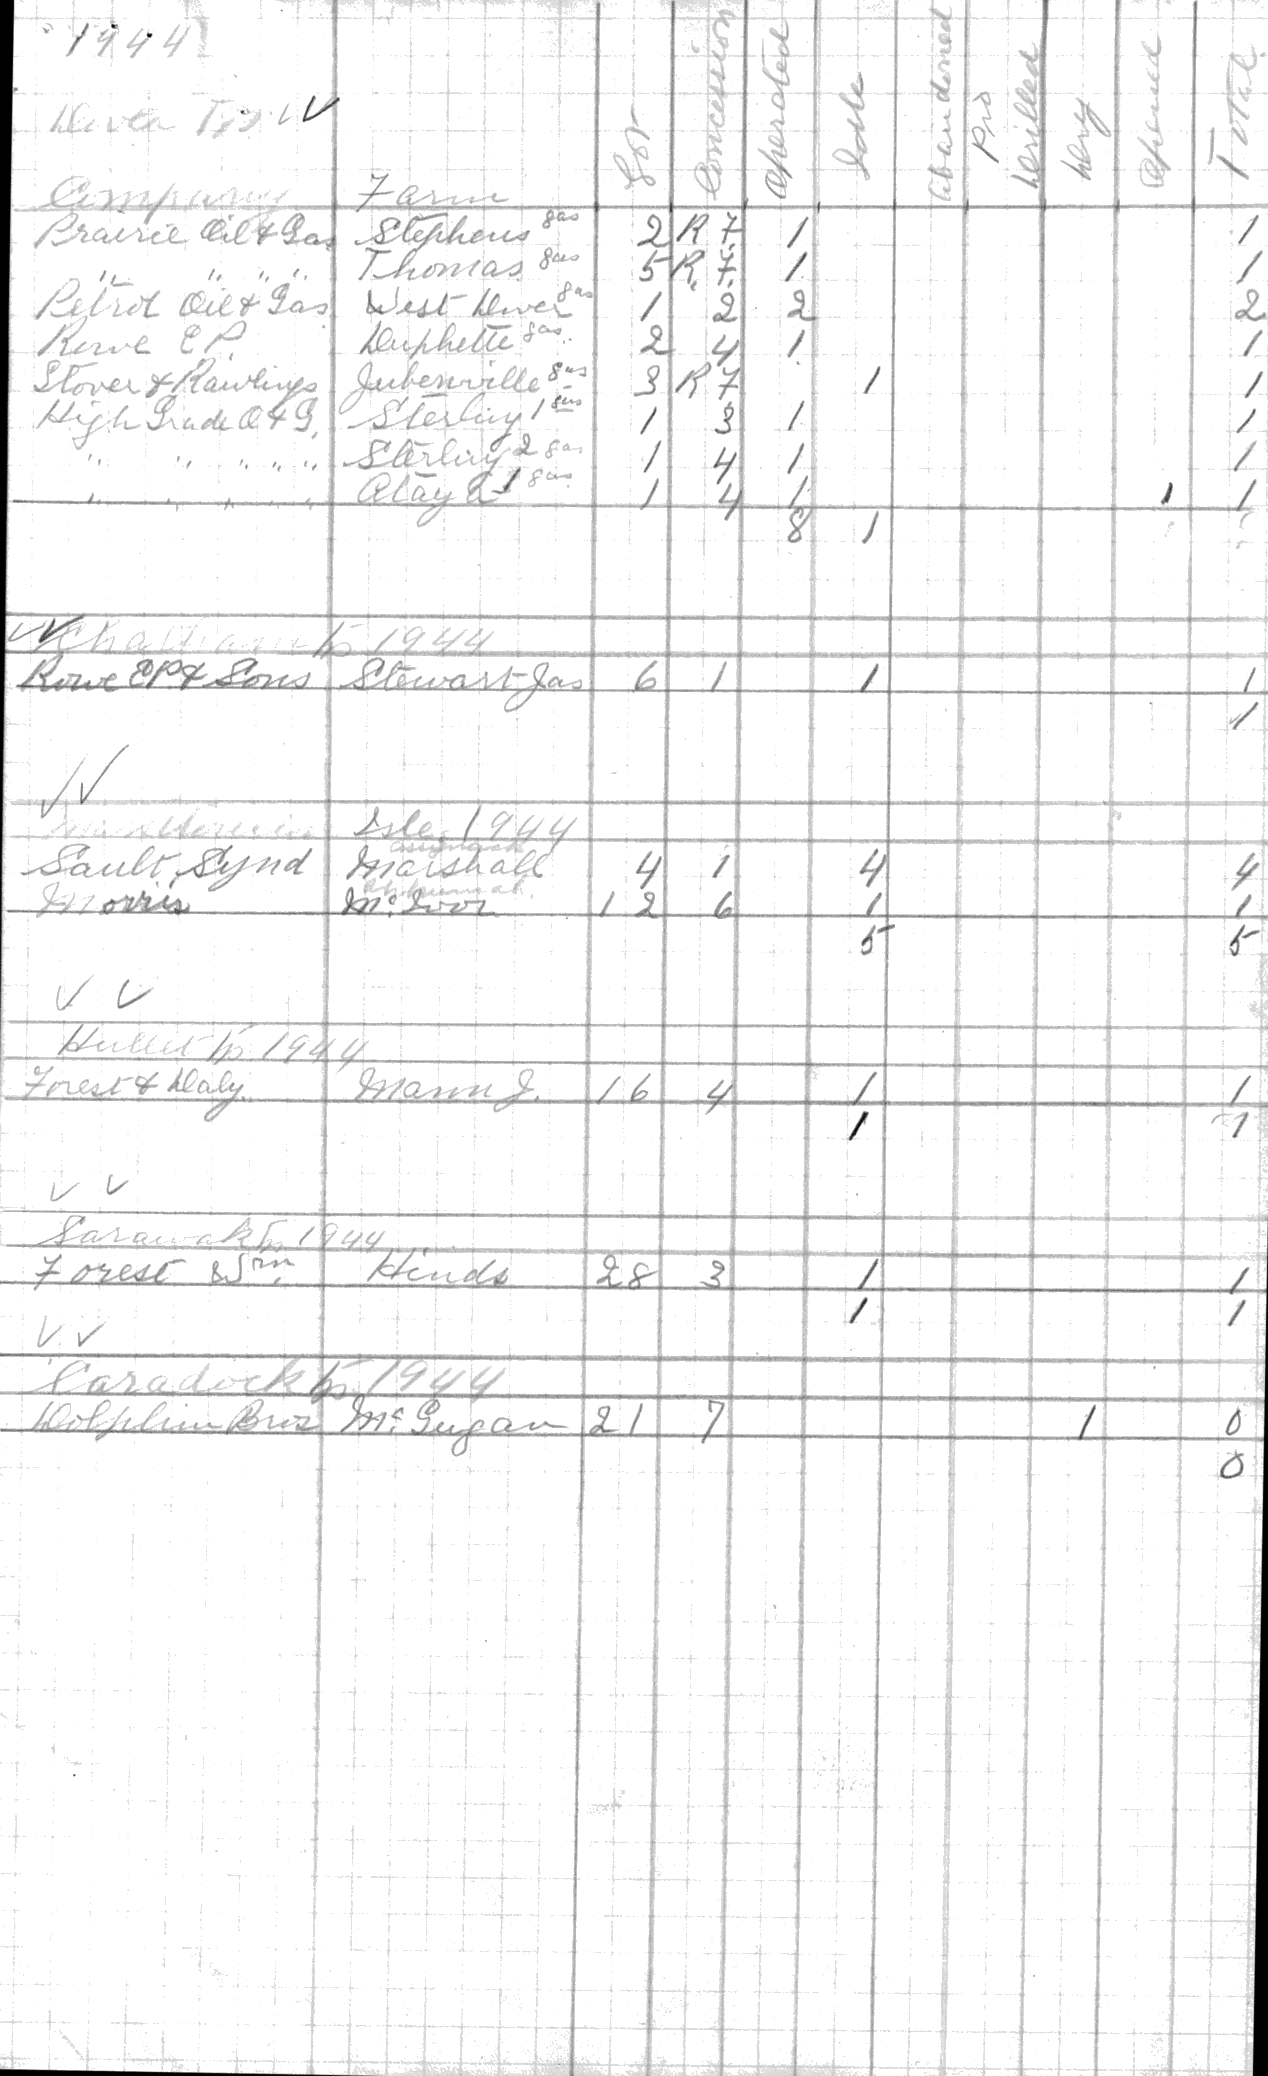 1944
Dover Tp.
Company Farm Lot Concession Operated Idle Abandoned Pro Drilled Dry Opened Total
Prairie Oil & Gas Stephens gas 2 R 7 1 1
" " " " Thomas gas 5 R. 7. 1 1
Petrol Oil & Gas West Dover gas 1 2 2 2
Rowe E.P. Duphette gas 2 4 1 1
Stover & Rawlings Jubenville gas 3 R 7 1 1
High Grade O & G. Sterling 1 gas 1 3 1 1
" " " " " Sterling 2 gas 1 4 1 1
" " " " " 1 gas 1 4 1 1 1
8 1
Chatham Tp 1944
Rowe EP & Sons Stewart Jas 6 1 1 1
1
Manitoulin Isle 1944
Sault Synd Marshall 4 1 4 4
Morris McIvor 12 6 1 1
5 5
Hullet Tp 1944
Forest & Daly Mann J. 16 4 1 1
1 1
Sarawak Tp 1944
Forest Wm. Hinds 28 3 1 1
1 1
Caradock Tp 1944
Dolphin Bros McGugan 21 7 1 0
0